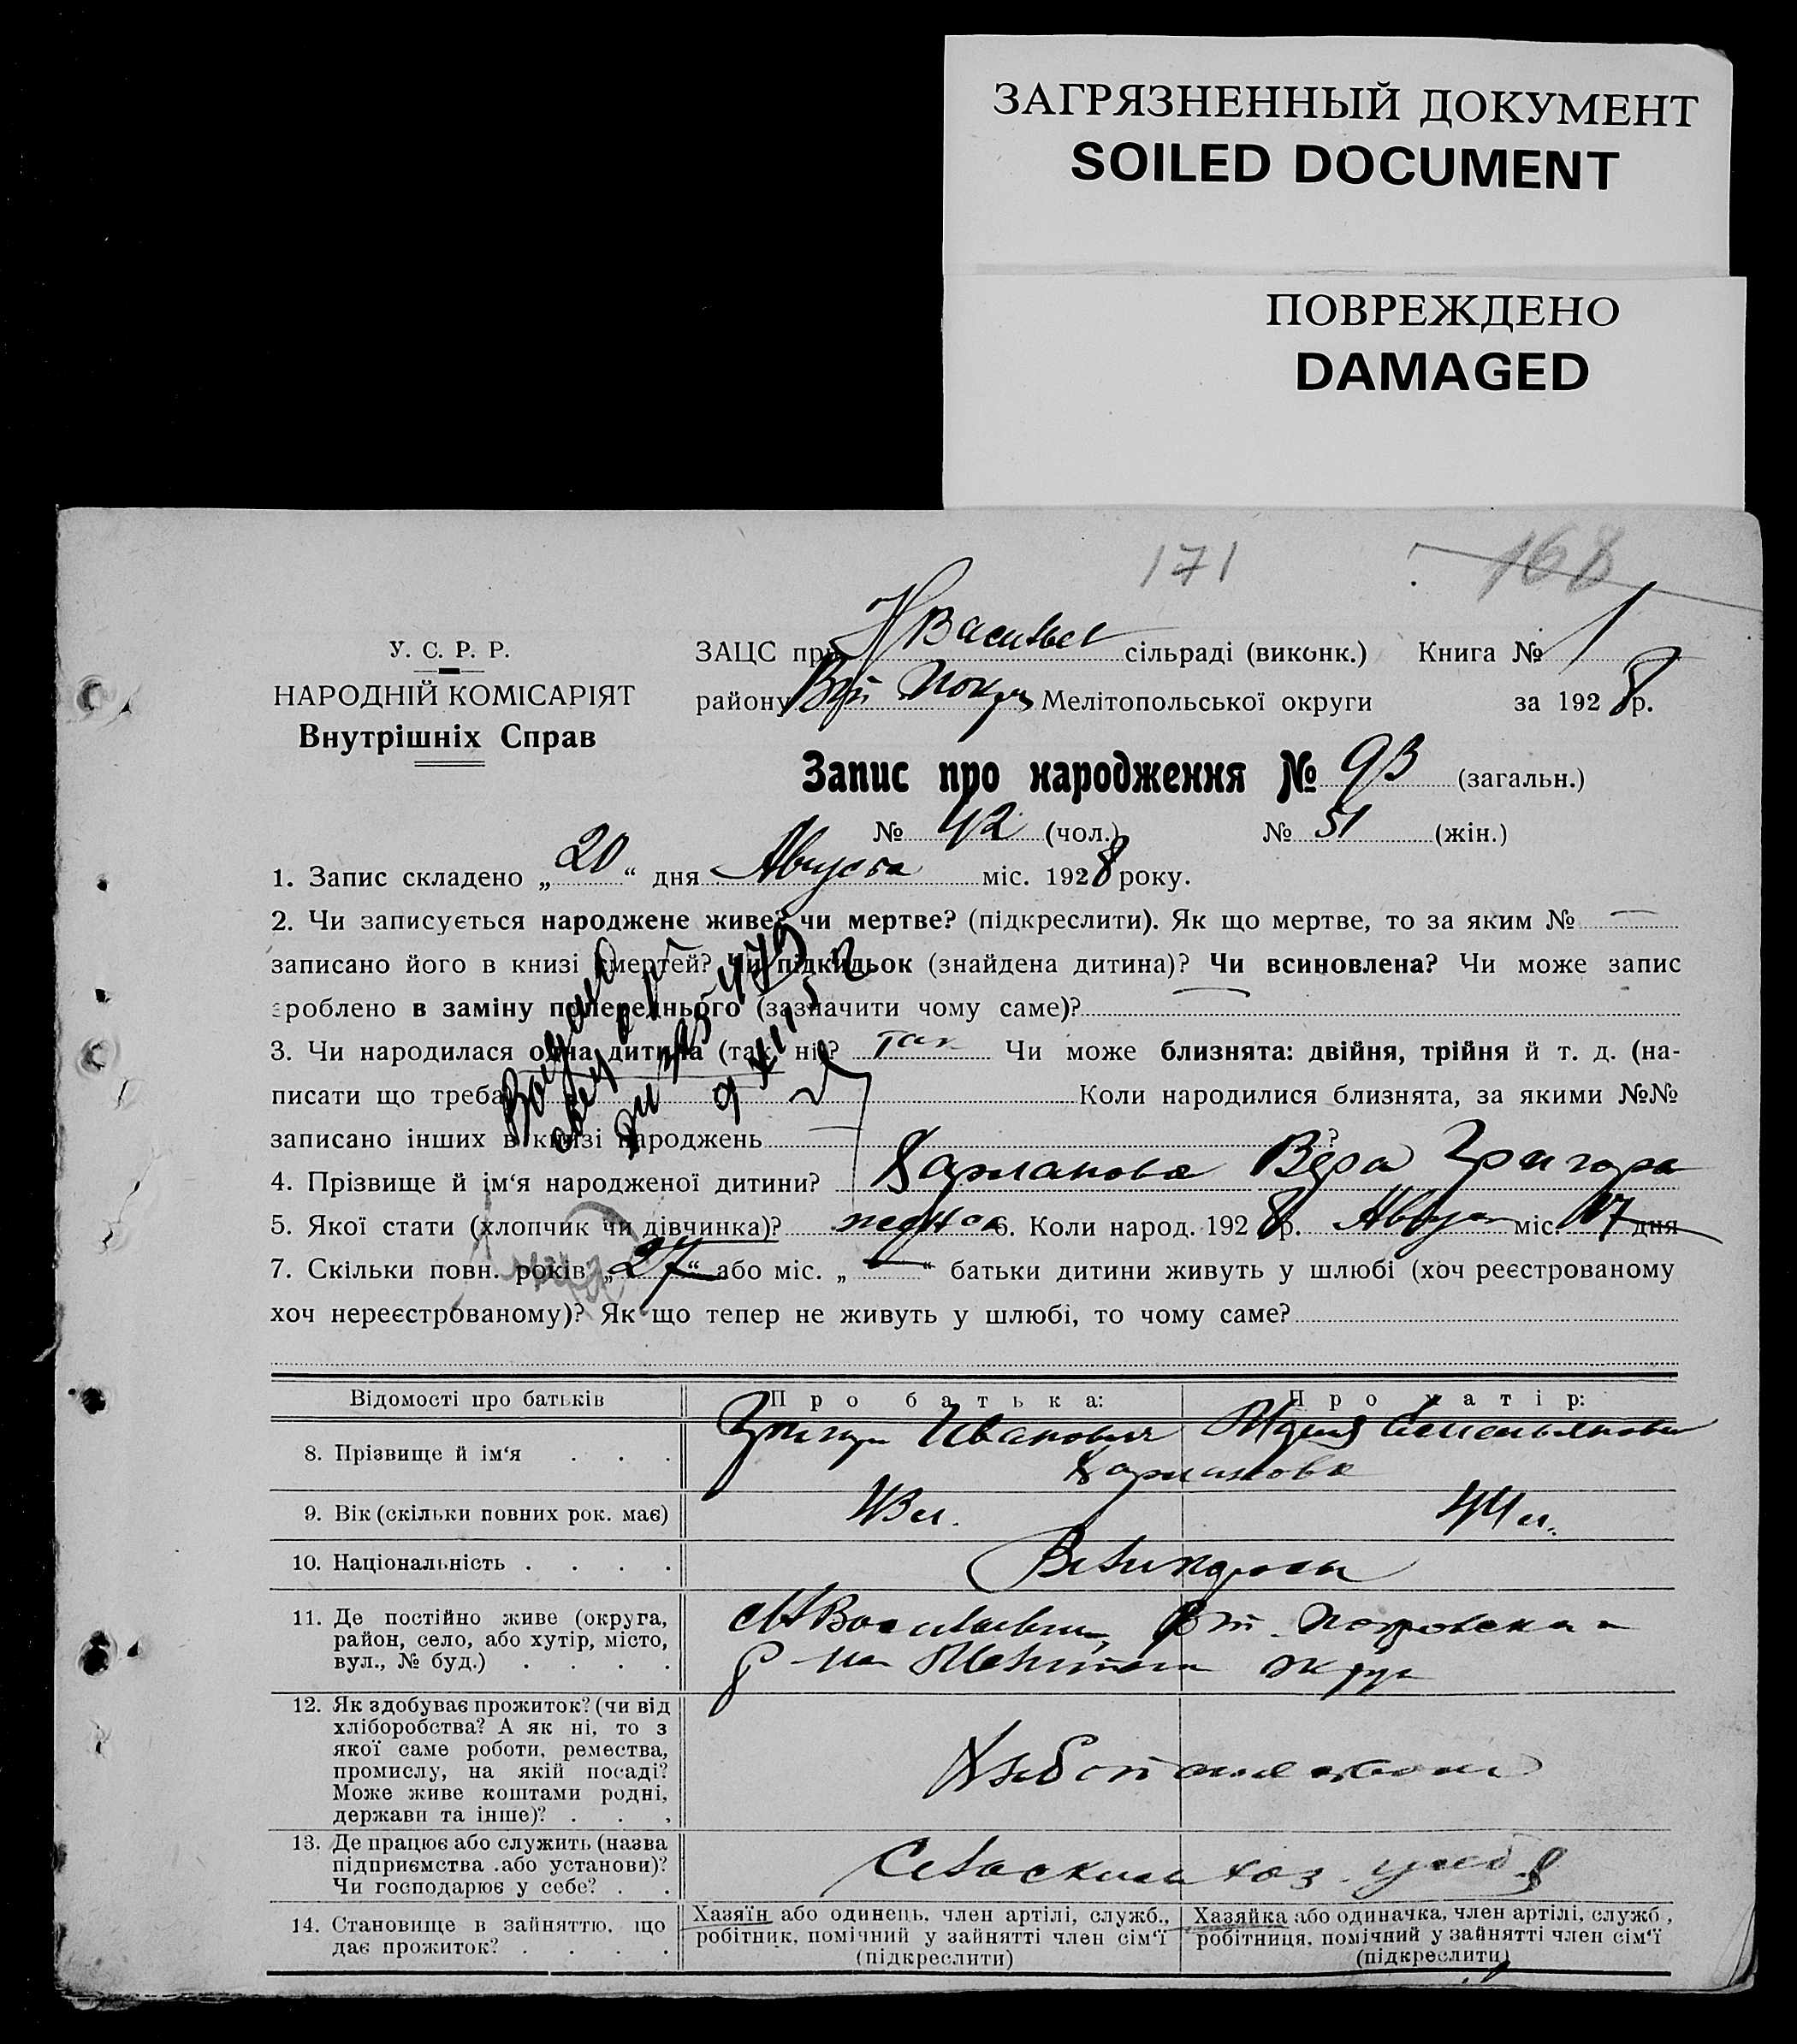 ЗАГРЯЗНЕННЫЙ ДОКУМЕНТ
SOILED DOCUMENT
ПОВРЕЖДЕНО
DAMAGED
171
168
У. С. Р. Р.
НАРОДНІЙ КОМІСАРІЯТ
Внутрішніх Справ
ЗАЦС при Н Васильев сільраді (виконк.) Книга № 1
району Вт Покр Мелітопольської округи за 1928 р.
Запис про народження № 93 (загальн.)
№ 42 (чол.) № 51 (жін.)
1. Запис складено „20“ дня Августа міс. 1928 року.
2. Чи записується народжене живе чи мертве? (підкреслити). Як що мертве, то за яким №
записано його в книзі смертей? Чи підкидьок (знайдена дитина)? Чи всиновлена? Чи може запис
зроблено в заміну попереднього (зазначити чому саме)?
3. Чи народилася одна дитина (так, ні)? так Чи може близнята: двійня, трійня й т. д. (на-
писати що треба) Коли народилися близнята, за якими №№
записано інших в книзі народжень ?
4. Прізвище й ім‘я народженої дитини? Вера Григор
5. Якої стати (хлопчик чи дівчинка)? 6. Коли народ. 1928 р. Август міс. 17 дня
7. Скільки повн. років „27“ або міс. „—“ батьки дитини живуть у шлюбі (хоч реєстрованому
хоч нереєстрованому)? Як що тепер не живуть у шлюбі, то чому саме?
Відомості про батьків Про батька: Про матір:
8. Прізвище й ім‘я Григор Иванович
9. Вік (скільки повних рок. має) 43 л. 44 л.
10. Національність
11. Де постійно живе (округа,
район, село, або хутір, місто,
вул., № буд.)
Н Васильевка, Вт. Покровского
р-на Мелитоп округ
12. Як здобуває прожиток? (чи від
хліборобства? А як ні, то з
якої саме роботи, ремества,
промислу, на якій посаді?
Може живе коштами родні,
держави та інше)?
13. Де працює або служить (назва
підприємства або установи)?
Чи господарює у себе?
14. Становище в зайняттю, що
дає прожиток?
Хазяїн або одинець, член артілі, служб.,
робітник, помічний у зайнятті член сім‘ї
(підкреслити)
Хазяйка або одиначка, член артілі, служб.,
робітниця, помічний у зайнятті член сім‘ї
(підкреслити)